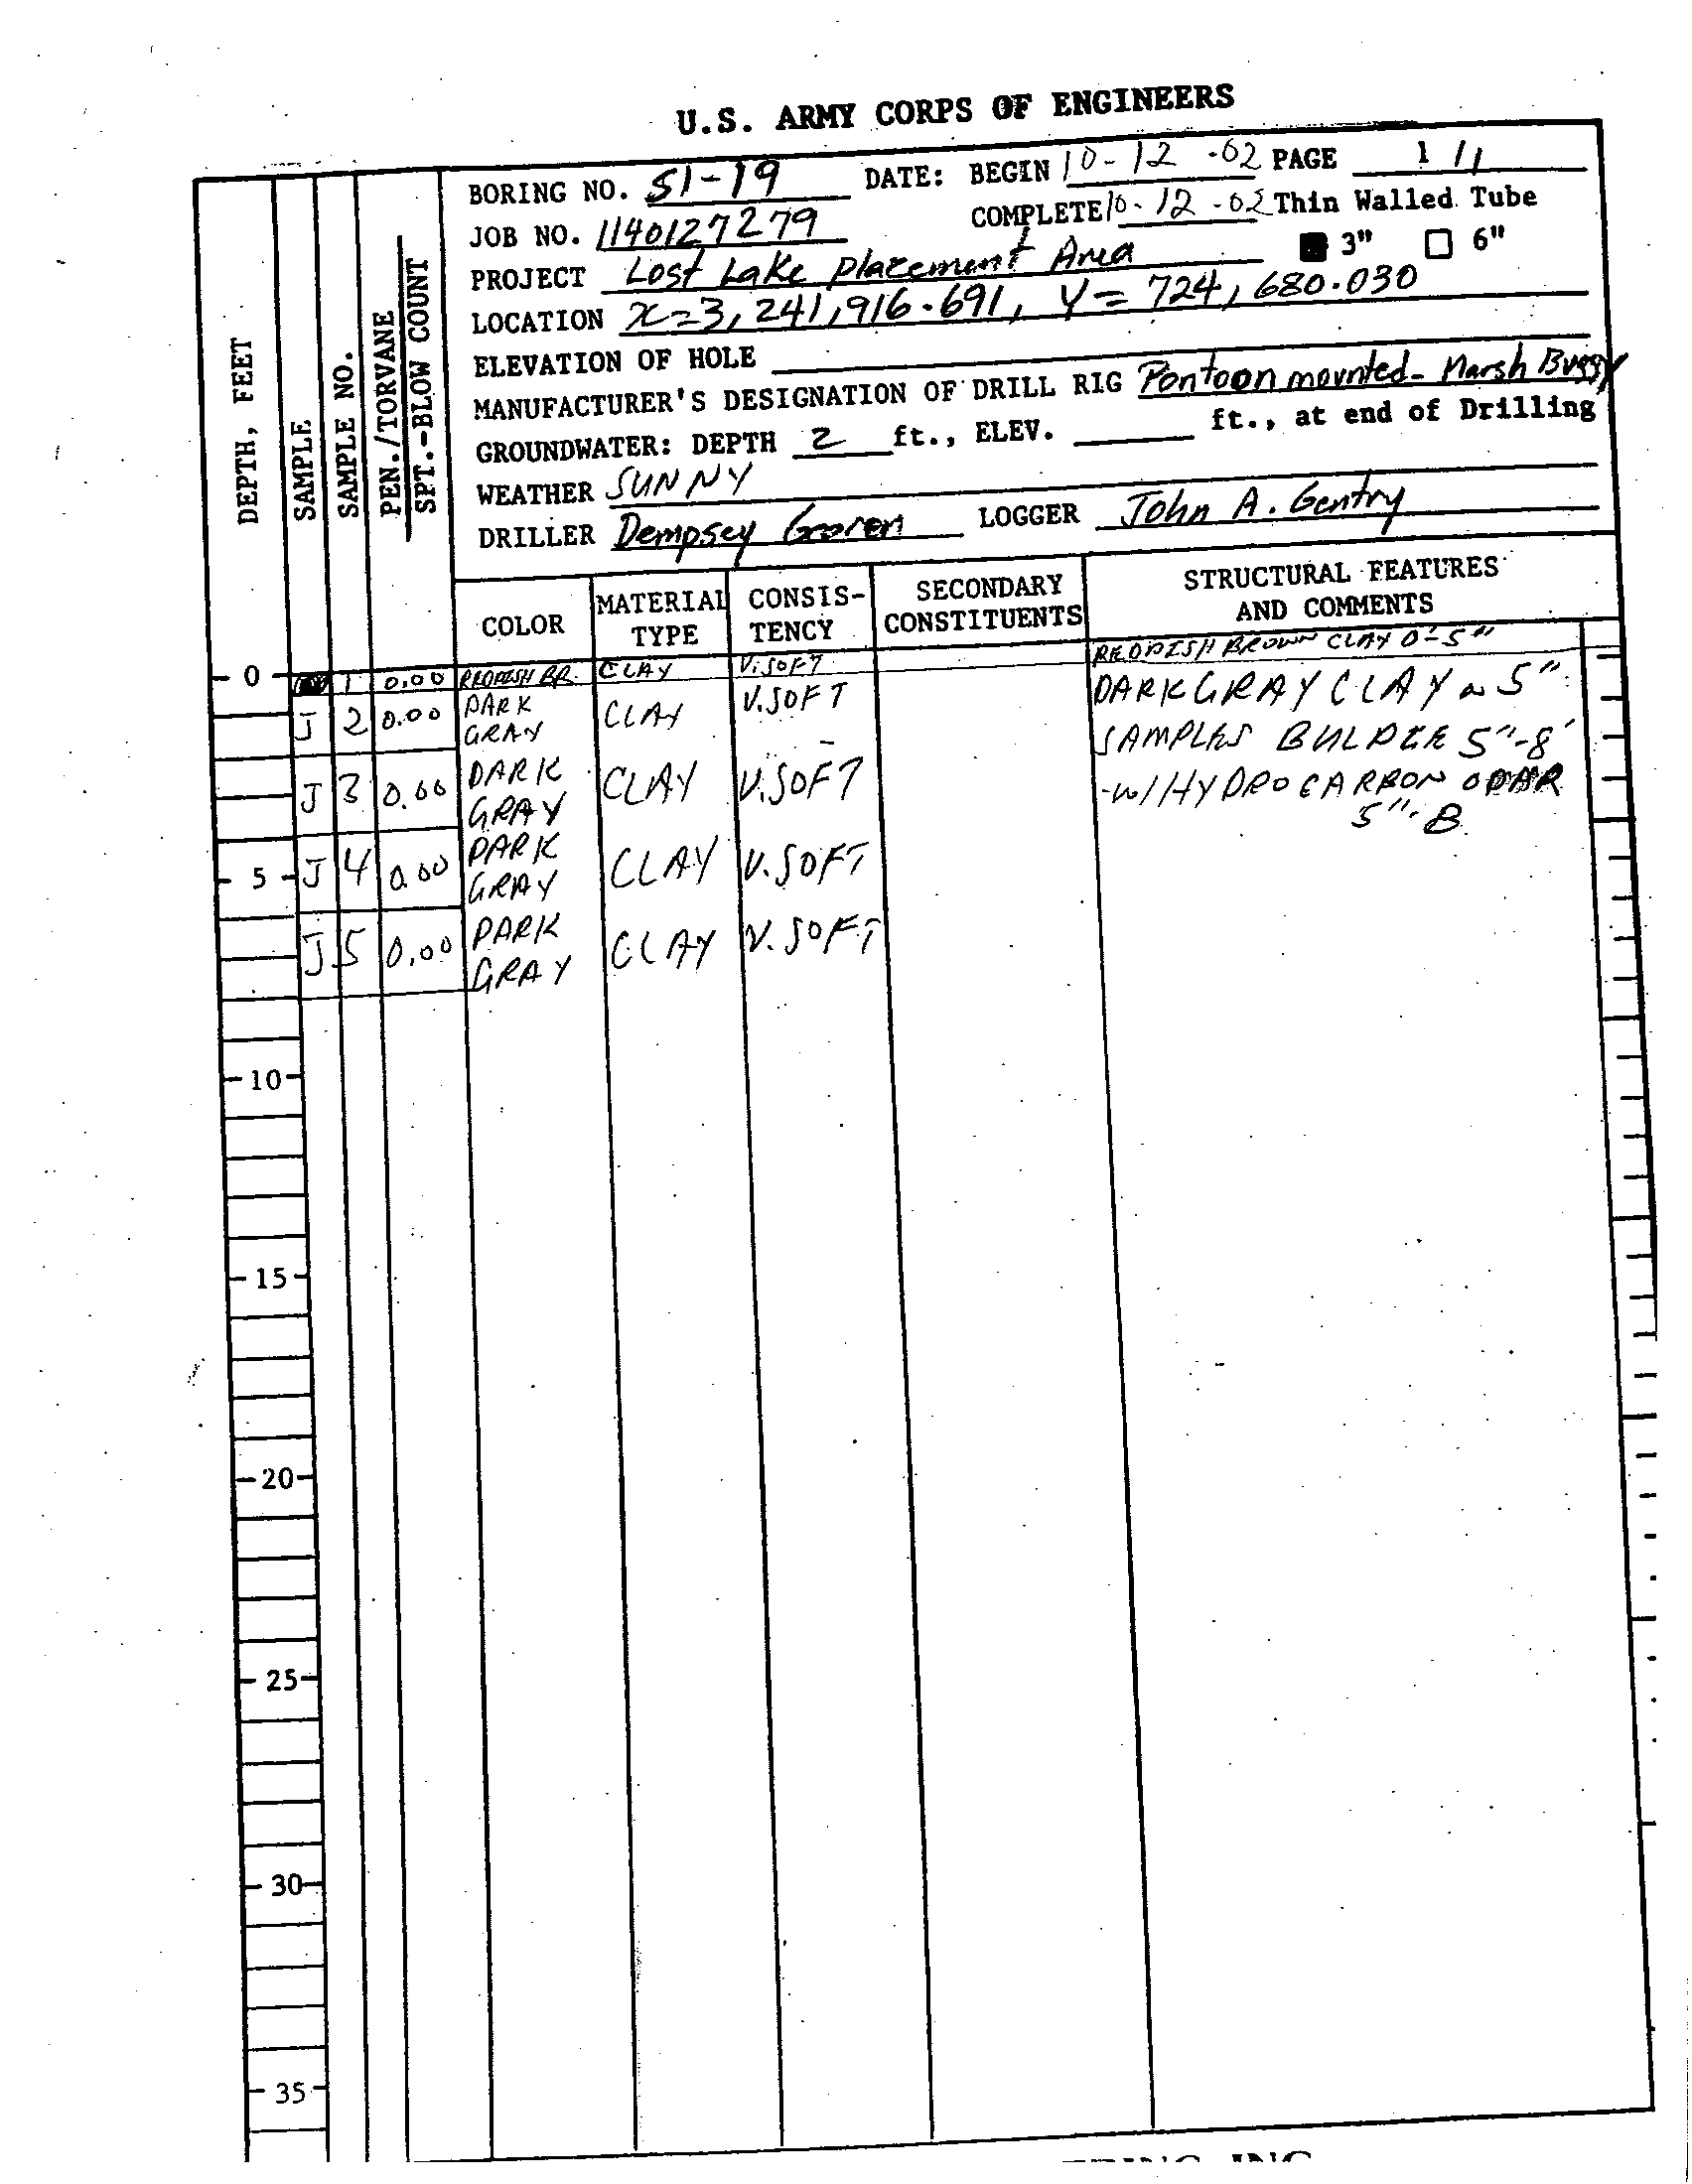 U.S. ARMY CORPS OF ENGINEERS
BORING NO. SI-19 DATE: BEGIN 10-12-02 PAGE 1/1
JOB NO. 1140127279 COMPLETE 10-12-02 Thin Walled Tube
PROJECT Lost Lake Placement Area 3" 6"
LOCATION X=3,241,916.691, Y=724,680.030
ELEVATION OF HOLE
MANUFACTURER'S DESIGNATION OF DRILL RIG Pontoon mounted-Marsh Buggy
GROUNDWATER: DEPTH 2 ft., ELEV. ft., at end of Drilling
WEATHER SUNNY
DRILLER Dempsey LOGGER John A. Gentry
DEPTH, FEET
SAMPLE
SAMPLE NO.
PEN./TORVANE
SPT.-BLOW COUNT
COLOR
MATERIAL TYPE
CONSIS-TENCY
SECONDARY CONSTITUENTS
STRUCTURAL FEATURES AND COMMENTS
0 1 0.00 REDDISH BR. CLAY V.SOFT REDDISH BROWN CLAY 0-5"
J 2 0.00 DARK GRAY CLAY V.SOFT DARK GRAY CLAY ~ 5"
SAMPLES 5"-8'
J 3 0.00 DARK GRAY CLAY V.SOFT -W/HYDROCARBON ODAR
5"-8
5 J 4 0.00 DARK GRAY CLAY V.SOFT
J 5 0.00 DARK GRAY CLAY V.SOFT
10
15
20
25
30
35